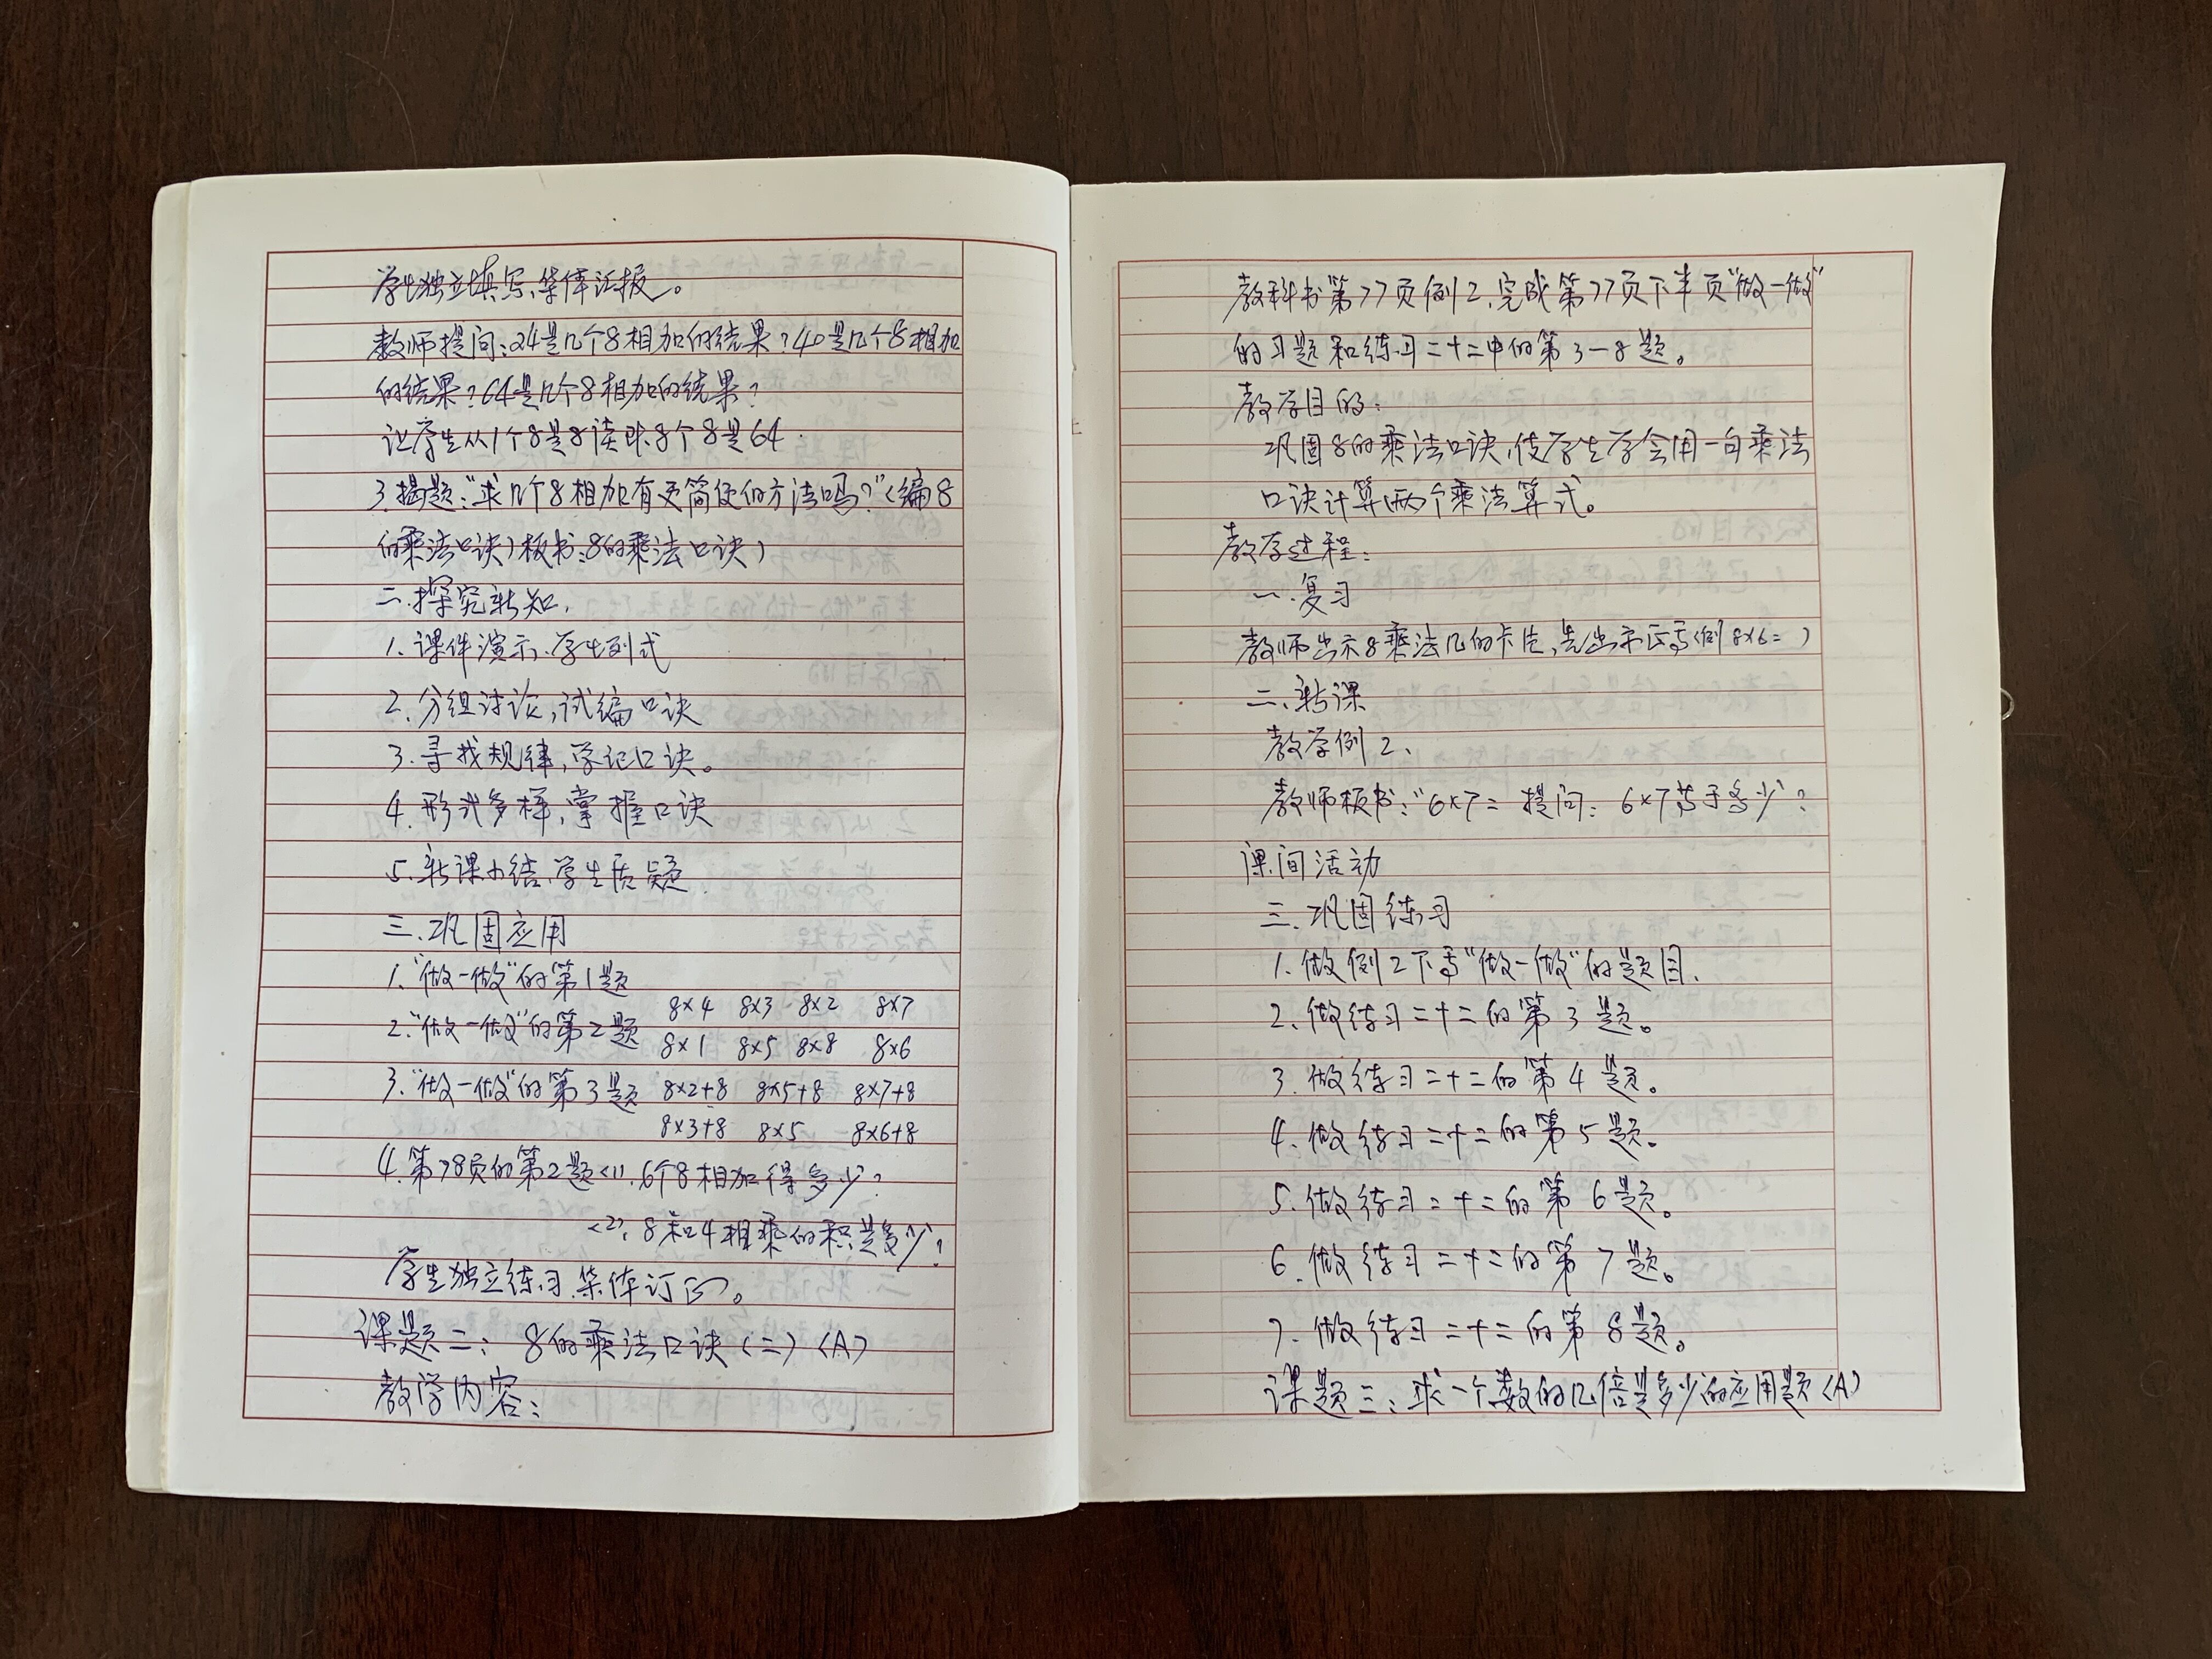 学生独立填写、集体汇报。
教师提问:24是几个8相加的结果?40是几个8相加
的结果?64是几个8相加的结果?
让学生从1个8是8读到8个8是64.
3.揭题:"求几个8相加有更简便的方法吗?"(编8
的乘法口诀)板书:8的乘法口诀)
二.探究新知.
1.课件演示、学生列式
2.分组讨论,试编口诀
3.寻找规律,学记口诀。
4.形式多样,掌握口诀
5.新课小结,学生质疑.
三.巩固应用
1."做一做"的第1题
8×4 8×3 8×2 8×7
2."做一做"的第2题
8×1 8×5 8×8 8×6
3."做一做"的第3题 8×2+8 8×5+8 8×7+8
8×3+8 8×5 8×6+8
4.第78页的第2题<1>.6个8相加得多少?
<2>.8和4相乘的积是多少?
学生独立练习.集体订正。
课题二:8的乘法口诀(二)(A)
教学内容:
教科书第77页例2.完成第77页下半页"做一做"
的习题和练习二十二中的第3—8题。
教学目的:
巩固8的乘法口诀,使学生学会用一句乘法
口诀计算两个乘法算式。
教学过程:
一.复习
教师出示8乘法几的卡片,先出示正面(例8×6=)
二.新课
教学例2.
教师板书:"6×7= 提问:6×7等于多少?
课间活动
三.巩固练习
1.做例2下面"做一做"的题目.
2.做练习二十二的第3题。
3.做练习二十二的第4题。
4.做练习二十二的第5题。
5.做练习二十二的第6题。
6.做练习二十二的第7题。
7.做练习二十二的第8题。
课题三:求一个数的几倍是多少的应用题(A)